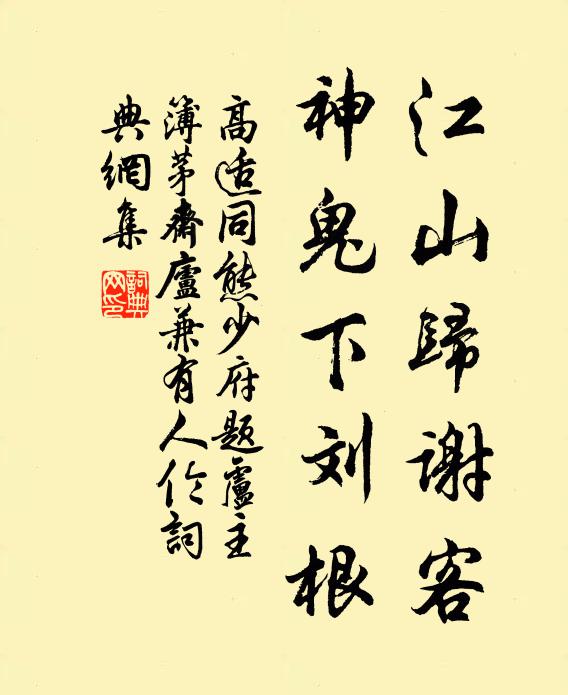 江山歸谢客
神鬼下刘根
高适同熊少府题盧主
簿茅齋廬兼有人伦詞
典網集
詞典网印